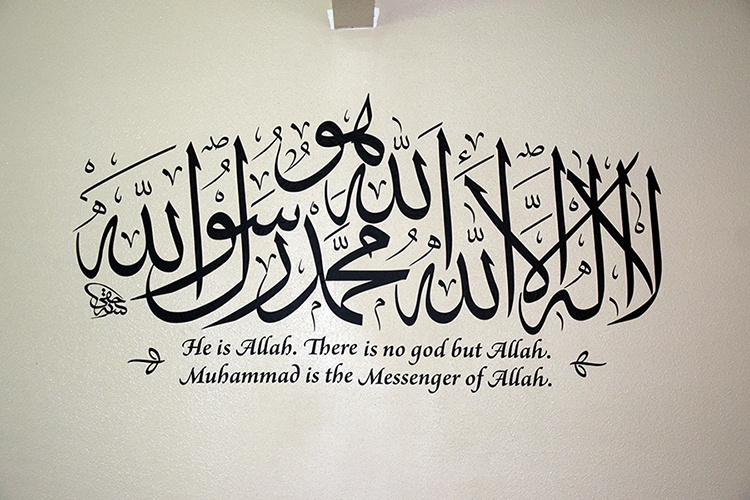 هو الله
لا إله إلا الله محمد رسول الله
He is Allah. There is no god but Allah.
Muhammad is the Messenger of Allah.